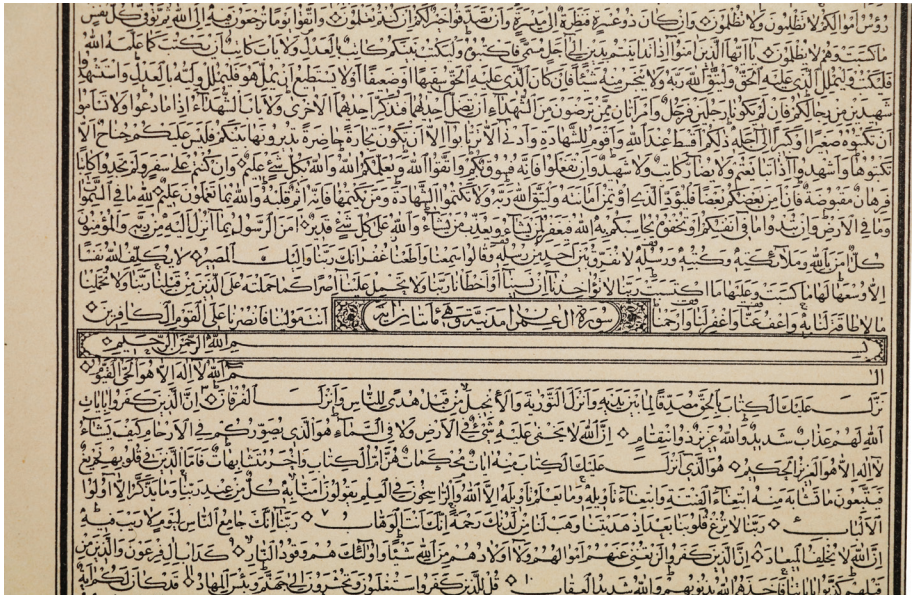 رؤس اموالكم لا تظلمون ولا تظلمون وان كان ذو عسرة فنظرة الى ميسرة وان تصدقوا خير لكم ان كنتم تعلمون واتقوا يوما ترجعون فيه الى الله ثم توفى كل نفس
ما كسبت وهم لا يظلمون يا ايها الذين امنوا اذا تداينتم بدين الى اجل مسمى فاكتبوه وليكتب بينكم كاتب بالعدل ولا ياب كاتب ان يكتب كما علمه الله
فليكتب وليملل الذي عليه الحق وليتق الله ربه ولا يبخس منه شيئا فان كان الذي عليه الحق سفيها او ضعيفا او لا يستطيع ان يمل هو فليملل وليه بالعدل واستشهدوا
شهيدين من رجالكم فان لم يكونا رجلين فرجل وامراتان ممن ترضون من الشهداء ان تضل احديهما فتذكر احديهما الاخرى ولا ياب الشهداء اذا ما دعوا ولا تساموا
ان تكتبوه صغيرا او كبيرا الى اجله ذلكم اقسط عند الله واقوم للشهادة وادنى الا ترتابوا الا ان تكون تجارة حاضرة تديرونها بينكم فليس عليكم جناح الا
تكتبوها واشهدوا اذا تبايعتم ولا يضار كاتب ولا شهيد وان تفعلوا فانه فسوق بكم واتقوا الله ويعلمكم الله والله بكل شئ عليم وان كنتم على سفر ولم تجدوا كاتبا
فرهان مقبوضة فان امن بعضكم بعضا فليؤد الذي اؤتمن امانته وليتق الله ربه ولا تكتموا الشهادة ومن يكتمها فانه اثم قلبه والله بما تعملون عليم لله ما في السموات
وما في الارض وان تبدوا ما في انفسكم او تخفوه يحاسبكم به الله فيغفر لمن يشاء ويعذب من يشاء والله على كل شئ قدير امن الرسول بما انزل اليه من ربه والمؤمنون
كل امن بالله وملائكته وكتبه ورسله لا نفرق بين احد من رسله وقالوا سمعنا واطعنا غفرانك ربنا واليك المصير لا يكلف الله نفسا
الا وسعها لها ما كسبت وعليها ما اكتسبت ربنا لا تؤاخذنا ان نسينا او اخطانا ربنا ولا تحمل علينا اصرا كما حملته على الذين من قبلنا ربنا ولا تحملنا
ما لا طاقة لنا به واعف عنا واغفر لنا وارحمنا انت مولينا فانصرنا على القوم الكافرين
سورة آل عمران مدنية وهي مائتا اية
بسم الله الرحمن الرحيم
الم الله لا اله الا هو الحي القيوم
نزل عليك الكتاب بالحق مصدقا لما بين يديه وانزل التورية والانجيل من قبل هدى للناس وانزل الفرقان ان الذين كفروا بايات
الله لهم عذاب شديد والله عزيز ذو انتقام ان الله لا يخفى عليه شئ في الارض ولا في السماء هو الذي يصوركم في الارحام كيف يشاء
لا اله الا هو العزيز الحكيم هو الذي انزل عليك الكتاب منه ايات محكمات هن ام الكتاب واخر متشابهات فاما الذين في قلوبهم زيغ
فيتبعون ما تشابه منه ابتغاء الفتنة وابتغاء تاويله وما يعلم تاويله الا الله والراسخون في العلم يقولون امنا به كل من عند ربنا وما يذكر الا اولوا
الالباب ربنا لا تزغ قلوبنا بعد اذ هديتنا وهب لنا من لدنك رحمة انك انت الوهاب ربنا انك جامع الناس ليوم لا ريب فيه
ان الله لا يخلف الميعاد ان الذين كفروا لن تغني عنهم اموالهم ولا اولادهم من الله شيئا واولئك هم وقود النار كداب ال فرعون والذين من
قبلهم كذبوا باياتنا فاخذهم الله بذنوبهم والله شديد العقاب ١٠ قل للذين كفروا ستغلبون وتحشرون الى جهنم وبئس المهاد قد كان لكم اية